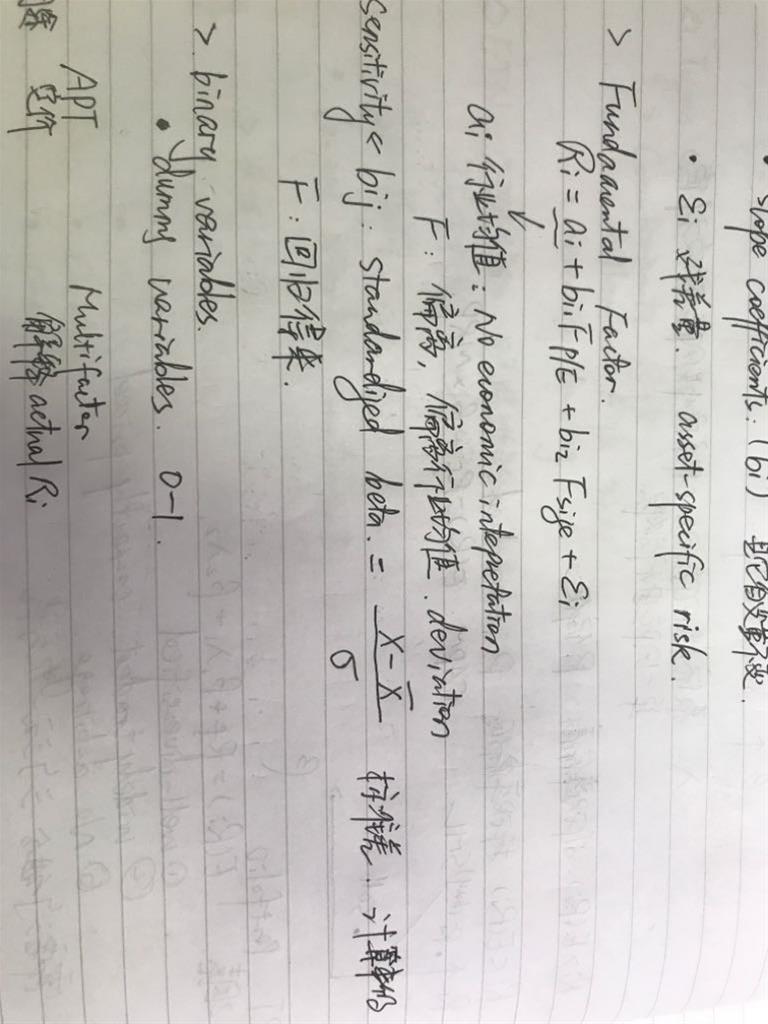 • slope coefficients. (bi) 其它自变量不变.
• εi 残差量. asset-specific risk.
> Fundamental Factor.
Ri = ai + bi1 Fp/E + bi2 Fsize + εi
ai 行业均值: No economic intepretation
F: 偏离, 偏离行业均值. deviation
sensitivity< bij: standardized beta. = (X - X̄)/σ 标准差. → 计算
F: 回归得来.
> binary variables.
• dummy variables. 0-1.
APT Multifactor
定价 解释 actual Ri